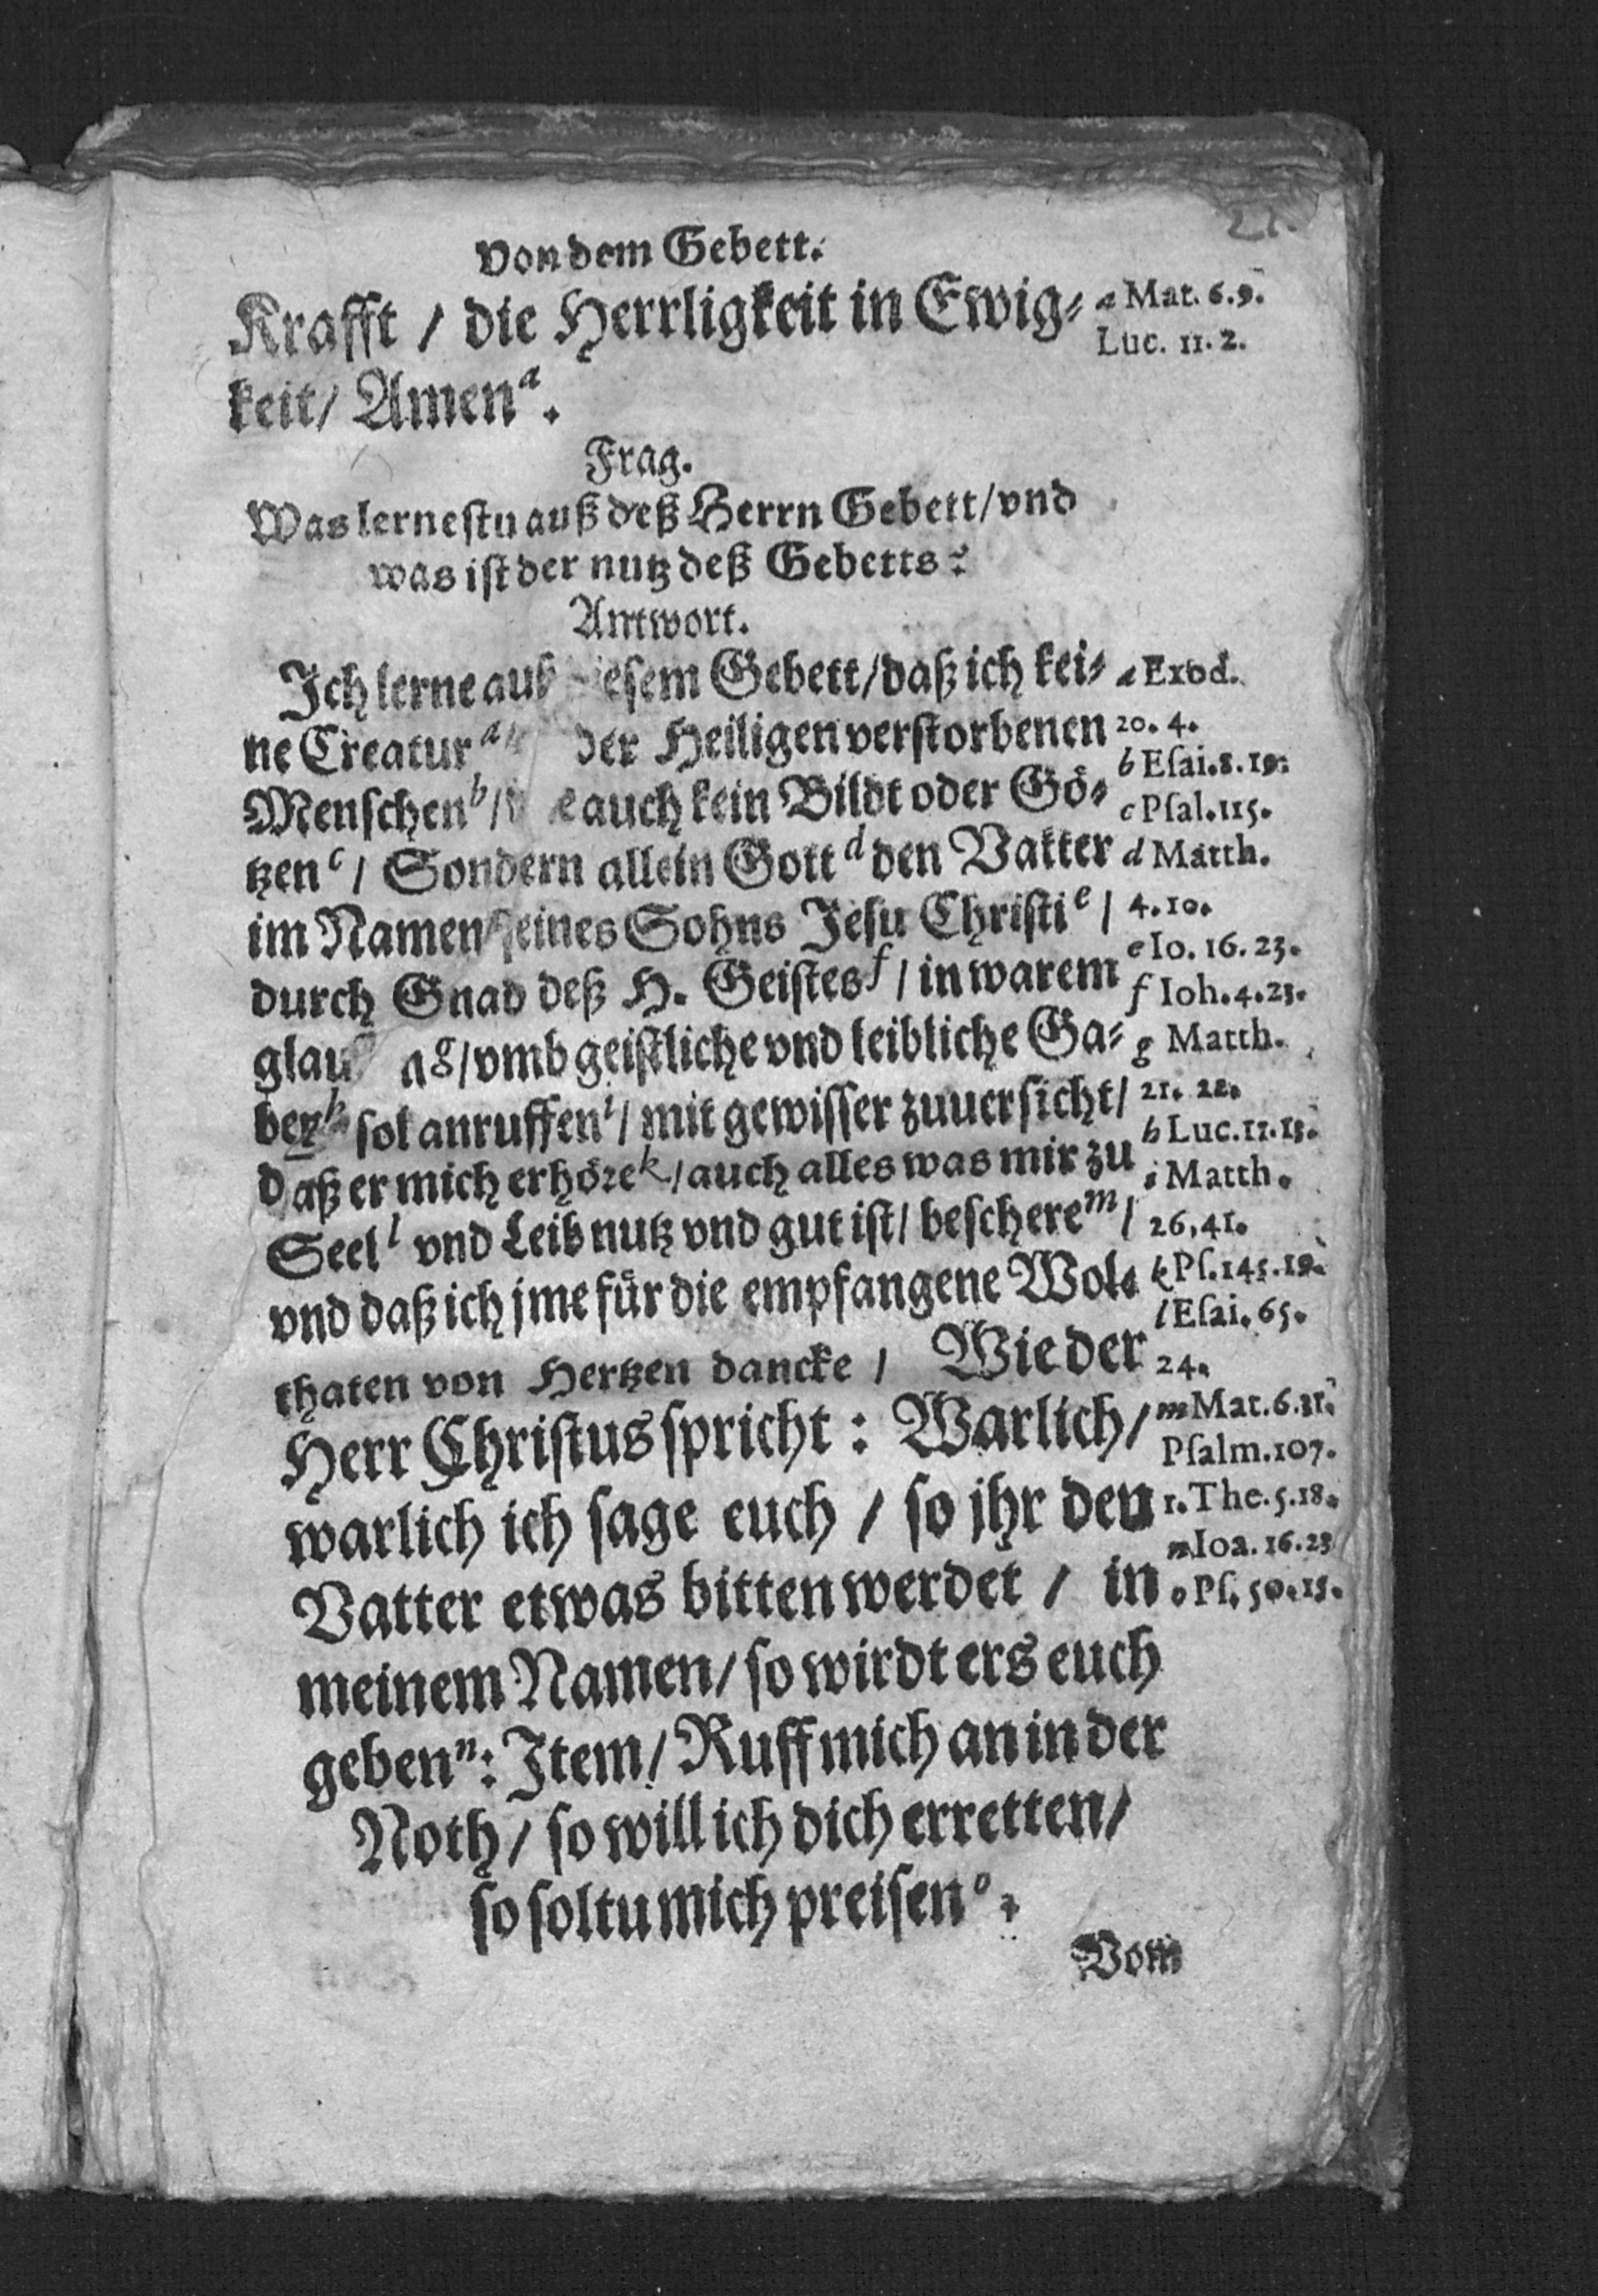 21.
Von dem Gebett.
Krafft / die Herrligkeit in Ewig-
keit / Amen a.
Frag.
Was lernestu auß deß Herrn Gebett / vnd
was ist der nutz deß Gebetts?
Antwort.
Ich lerne auß diesem Gebett / daß ich kei-
ne Creatur a der Heiligen verstorbenen
Menschen b / auch kein Bildt oder Gö-
tzen c / Sondern allein Gott d den Vatter
im Namen seines Sohns Jesu Christi e /
durch Gnad deß H. Geistes f / in warem
g / vmb geistliche vnd leibliche Ga-
ben h sol anruffen i / mit gewisser zuuersicht /
daß er mich erhöre k / auch alles was mir zu
Seel l vnd Leib nutz vnd gut ist / beschere m /
vnd daß ich jme für die empfangene Wol-
thaten von Hertzen dancke / Wie der
Herr Christus spricht : Warlich /
warlich ich sage euch / so jhr den
Vatter etwas bitten werdet / in
meinem Namen / so wirdt ers euch
geben n : Item / Ruff mich an in der
Noth / so will ich dich erretten /
so soltu mich preisen o.
Vom
a Mat. 6.9.
Luc. 11. 2.
a Exod.
20. 4.
b Esai. 8. 19.
c Psal. 115.
d Matth.
4. 10.
e Io. 16. 23.
f Ioh. 4. 23.
g Matth.
21. 22.
h Luc. 11. 13.
i Matth.
26, 41.
k Ps. 145. 19.
l Esai. 65.
24.
m Mat. 6. 31.
Psalm. 107.
1. The. 5. 18.
n Ioa. 16. 23
o Ps. 50. 15.